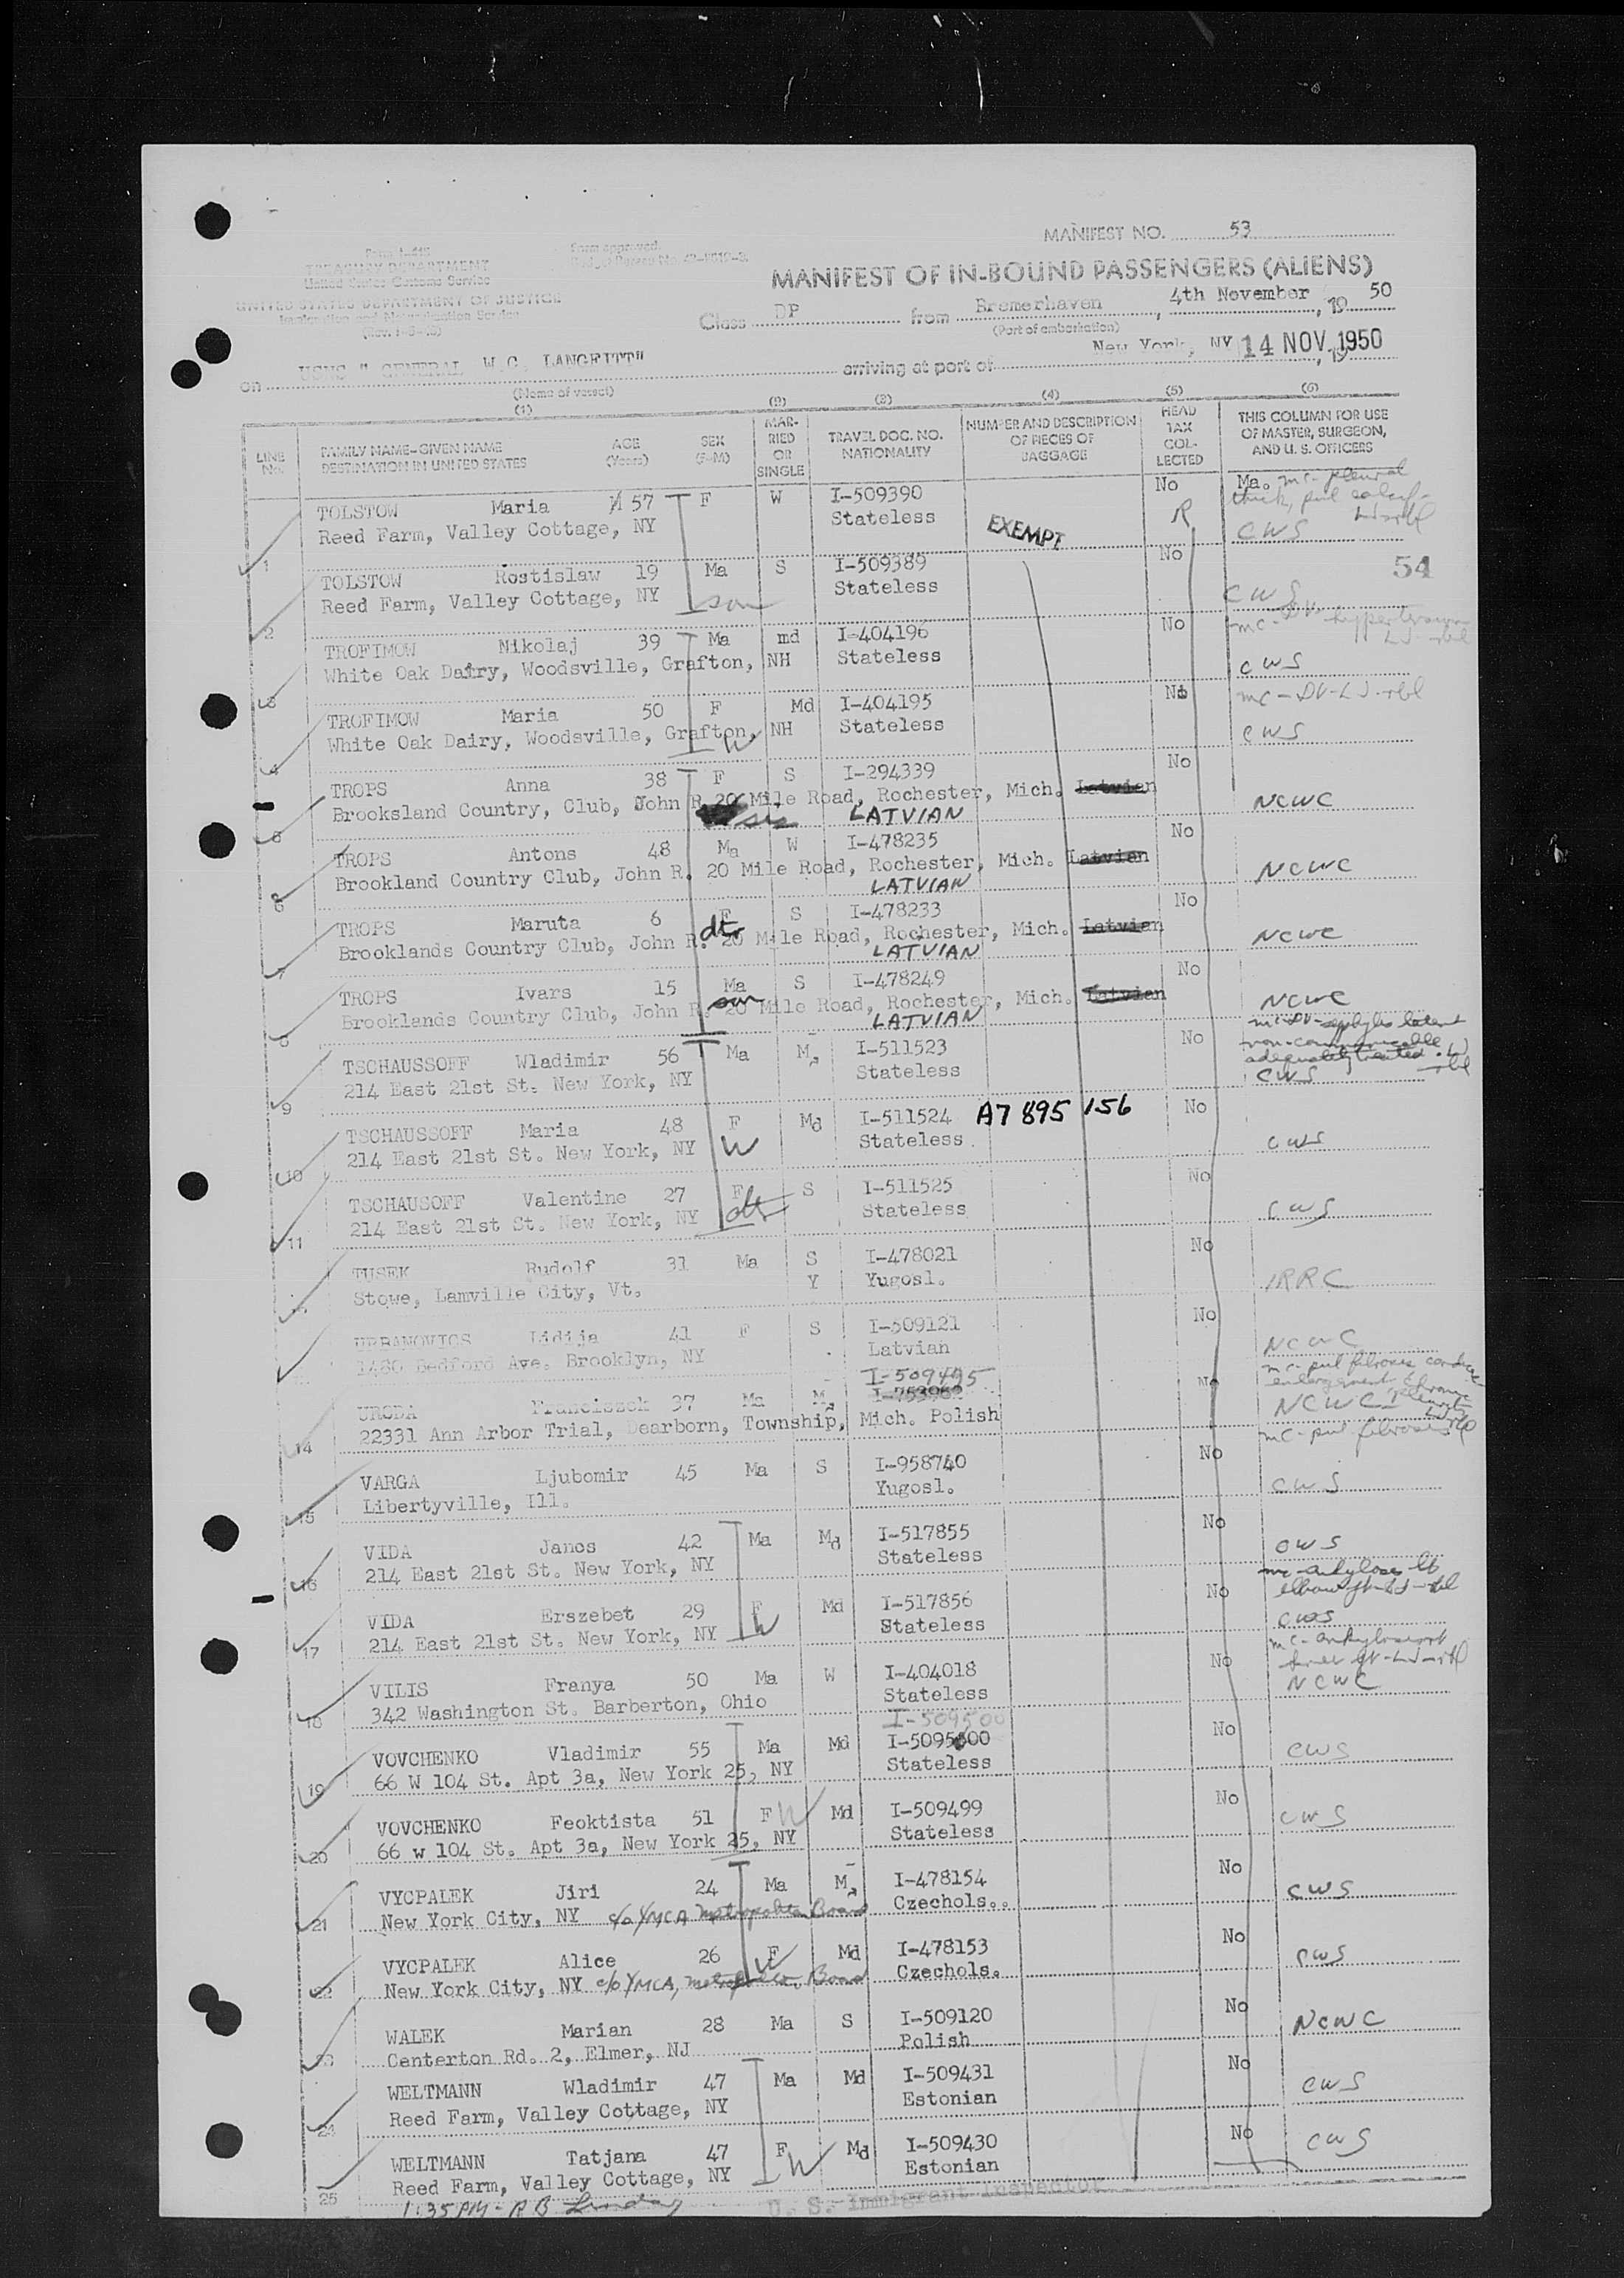 MANIFEST NO. 53
Form I-415
TREASURY DEPARTMENT
United States Customs Service
UNITED STATES DEPARTMENT OF JUSTICE
Immigration and Naturalization Service
Form approved.
MANIFEST OF IN-BOUND PASSENGERS (ALIENS)
Class DP from Bremerhaven, 4th November, 19 50
(Port of embarkation)
on USNS " GENERAL W.C. LANGFITT" arriving at port of New York, NY 14 NOV 1950, 19
(Name of vessel)
(1) (2) (3) (4) (5) (6)
LINE No. FAMILY NAME-GIVEN NAME DESTINATION IN UNITED STATES AGE (Years) SEX (F-M) MARRIED OR SINGLE TRAVEL DOC. NO. NATIONALITY NUMBER AND DESCRIPTION OF PIECES OF BAGGAGE HEAD TAX COLLECTED THIS COLUMN FOR USE OF MASTER, SURGEON, AND U. S. OFFICERS
TOLSTOW Maria 57 F W I-509390 No Ma. mc-pleural
Reed Farm, Valley Cottage, NY Stateless EXEMPT R CWS
1
54
TOLSTOW Rostislaw 19 Ma S I-509389 No
Reed Farm, Valley Cottage, NY son Stateless CWS
2
TROFIMOW Nikolaj 39 Ma md I-404196 No mc-DV-hypertension
White Oak Dairy, Woodsville, Grafton, NH Stateless CWS
3
TROFIMOW Maria 50 F Md I-404195 No mc-DV-LJ-rbl
White Oak Dairy, Woodsville, Grafton, NH W Stateless CWS
4
TROPS Anna 38 F S I-294339 No
Brooksland Country, Club, John R 20 Mile Road, Rochester, Mich. Latvian NCWC
sis LATVIAN
TROPS Antons 48 Ma W I-478235 No
Brookland Country Club, John R. 20 Mile Road, Rochester, Mich. Latvian NCWC
6 LATVIAN
TROPS Maruta 6 F S I-478233 No
dtr
Brooklands Country Club, John R. 20 Mile Road, Rochester, Mich. Latvian NCWC
7 LATVIAN
TROPS Ivars 15 Ma S I-478249 No
son
Brooklands Country Club, John R. 20 Mile Road, Rochester, Mich. Latvian NCWC
8 LATVIAN
mc-DV-syphilis latent
non-communicable
adequately treated
TSCHAUSSOFF Wladimir 56 Ma M I-511523 No
214 East 21st St. New York, NY Stateless CWS
9
TSCHAUSSOFF Maria 48 F Md I-511524 A7 895 156 No
214 East 21st St. New York, NY W Stateless CWS
10
TSCHAUSOFF Valentine 27 F S I-511525 No
214 East 21st St. New York, NY dtr Stateless CWS
11
TUSEK Rudolf 31 Ma S I-478021 No
Stowe, Lamville City, Vt. Y Yugosl. IRRC
URBANOVICS Lidija 41 F S I-509121 No
1480 Bedford Ave. Brooklyn, NY Latvian NCWC
I-509495
URODA Franciszek 37 Ma M I-753962 No
22331 Ann Arbor Trial, Dearborn, Township, Mich. Polish NCWC
14
VARGA Ljubomir 45 Ma S I-958740 No
Libertyville, Ill. Yugosl. CWS
15
VIDA Janos 42 Ma Md I-517855 No
214 East 21st St. New York, NY Stateless CWS
16
VIDA Erszebet 29 F Md I-517856 No
214 East 21st St. New York, NY W Stateless CWS
17
VILIS Franya 50 Ma W I-404018 No
342 Washington St. Barberton, Ohio Stateless NCWC
18 I-509500
VOVCHENKO Vladimir 55 Ma Md I-5095500 No
66 W 104 St. Apt 3a, New York 25, NY Stateless CWS
19
VOVCHENKO Feoktista 51 F W Md I-509499 No
66 w 104 St. Apt 3a, New York 25, NY Stateless CWS
20
VYCPALEK Jiri 24 Ma M I-478154 No
New York City, NY c/o YMCA Metropolitan Board Czechols.. CWS
21
VYCPALEK Alice 26 F W Md I-478153 No
New York City, NY c/o YMCA, Metropolitan Board Czechols. CWS
22
WALEK Marian 28 Ma S I-509120 No
Centerton Rd. 2, Elmer, NJ Polish NCWC
23
WELTMANN Wladimir 47 Ma Md I-509431 No
Reed Farm, Valley Cottage, NY Estonian CWS
24
WELTMANN Tatjana 47 F W Md I-509430 No
Reed Farm, Valley Cottage, NY Estonian CWS
25
1:35 PM - R B
U. S. Immigrant Inspector